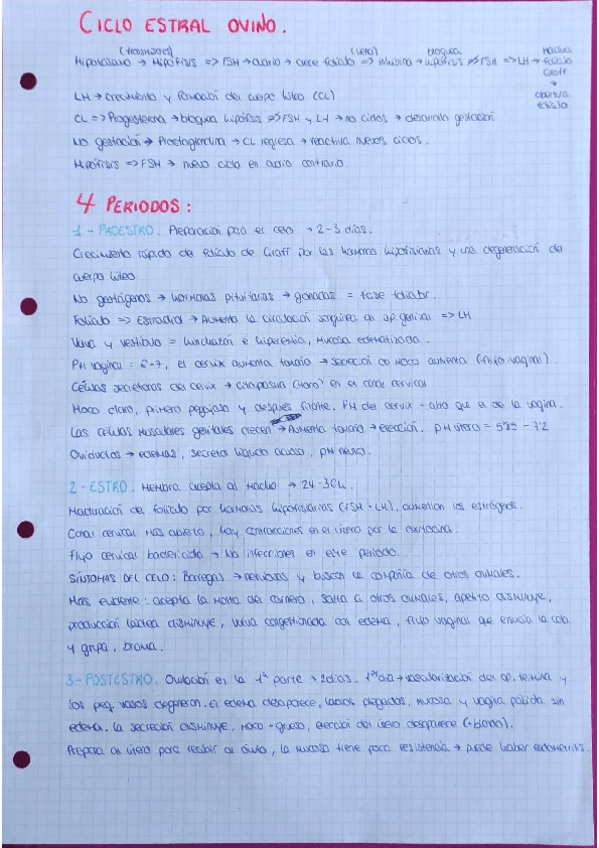 CICLO ESTRAL OVINO.
(transmisores) (útero) bloquea madura
Hipotálamo → Hipófisis => FSH → ovario → crece folículo => inhibina → hipófisis ≠> FSH => LH → folículo
Graff
↓
obertura
folículo
LH → crecimiento y formación del cuerpo lúteo (CL)
CL => Progesterona → bloquea hipófisis ≠> FSH y LH → no ciclos → desarrolla gestación
No gestación → Prostaglandina → CL regresa → reactiva nuevos ciclos.
Hipófisis => FSH → nuevo ciclo en ovario contrario.
4 PERIODOS:
1 - PROESTRO. Preparación para el celo → 2-3 días.
Crecimiento rápido del folículo de Graff por las hormonas hipofisiarias y una degeneración del
cuerpo lúteo
No gestágenos → hormonas pituitarias → gonadas = fase folicular.
Folículo => Estradiol → Aumenta la circulación sanguínea en ap. genital => LH
Vulva y vestíbulo = hinchazón e hiperemia, mucosa edematizada.
PH vaginal = 6-7, el cervix aumenta tamaño → secreción de moco aumenta (flujo vaginal).
Células secretoras del cervix → citoplasma claro en el canal cervical
Moco claro, primero pegajoso y después filante. PH del cervix - alto que el de la vagina.
Las células musculares genitales crecen → Aumenta tamaño → erección. PH útero = 5'82 - 7'2
Oviductos → edemas, secreta líquido acuoso, pH neutro.
2 - ESTRO. Hembra acepta al macho → 24-36h.
Maduración del folículo por hormonas hipofisiarias (FSH + LH), aumentan los estrógenos.
Canal cervical más abierto, hay contracciones en el útero por la oxitocina.
Flujo cervical bactericida → No infecciones en este periodo.
SÍNTOMAS DEL CELO: Borregas → nerviosas y buscan la compañía de otros animales.
Más evidente: acepta la monta del carnero, salta a otros animales, apetito disminuye,
producción láctea disminuye, vulva congestionada con edema, flujo vaginal que ensucia la cola
y grupa, brama.
3 - POSTESTRO. Ovulación en la 1ª parte → 2 días. 1er día → vascularización del ap. termina y
los peq. vasos degeneran. El edema desaparece, labios plegados, mucosa y vagina pálida sin
edema. La secreción disminuye, moco + grueso, erección del útero desaparece (+ blando).
Prepara al útero para recibir al óvulo, la mucosa tiene poca resistencia → puede haber endometritis.